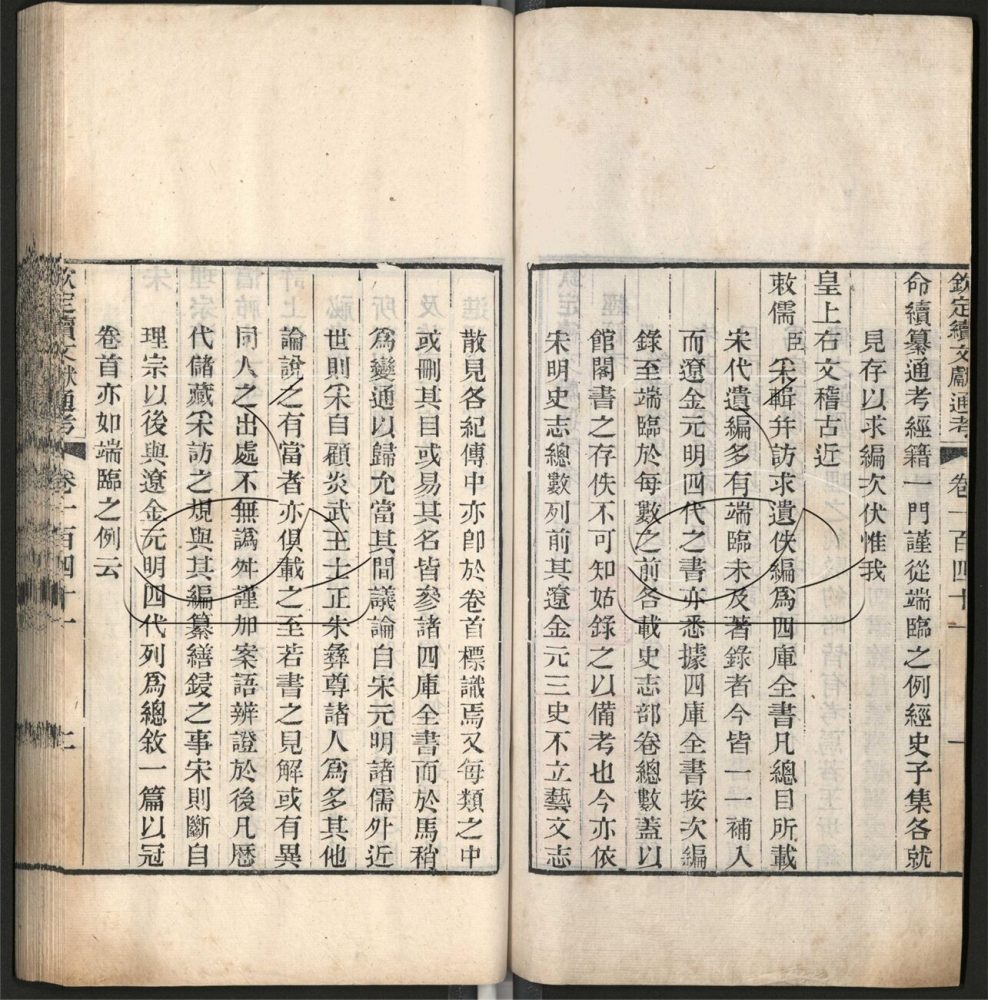 欽定續文獻通考 卷一百四十一 一
命續纂通考經籍一門謹從端臨之例經史子集各就
見存以求編次伏惟我
皇上右文稽古近
敕儒臣采輯幷訪求遺佚編爲四庫全書凡總目所載
宋代遺編多有端臨未及著錄者今皆一一補入
而遼金元明四代之書亦悉據四庫全書按次編
錄至端臨於每數之前各載史志部卷總數蓋以
館閣書之存佚不可知姑錄之以備考也今亦依
宋明史志總數列前其遼金元三史不立藝文志
散見各紀傳中亦卽於卷首標識焉又每類之中
或刪其目或易其名皆參諸四庫全書而於馬稍
爲變通以歸允當其間議論自宋元明諸儒外近
世則采自顧炎武王士正朱彝尊諸人爲多其他
論說之有當者亦俱載之至若書之見解或有異
同人之出處不無譌舛謹加案語辨證於後凡厯
代儲藏采訪之規與其編纂繕鋟之事宋則斷自
理宗以後與遼金元明四代列爲總敘一篇以冠
卷首亦如端臨之例云
欽定續文獻通考 卷一百四十一 二